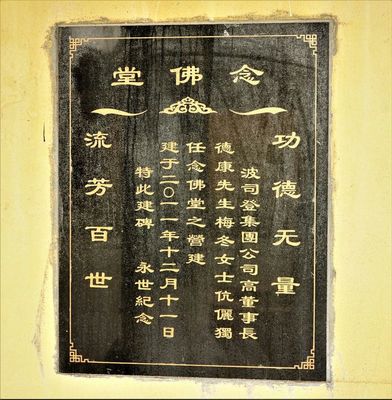 念佛堂
功德无量
波司登集團公司高董事長
德康先生梅冬女士伉儷獨
任念佛堂之營建
建于二〇一一年十二月十一日
特此建碑 永世紀念
流芳百世